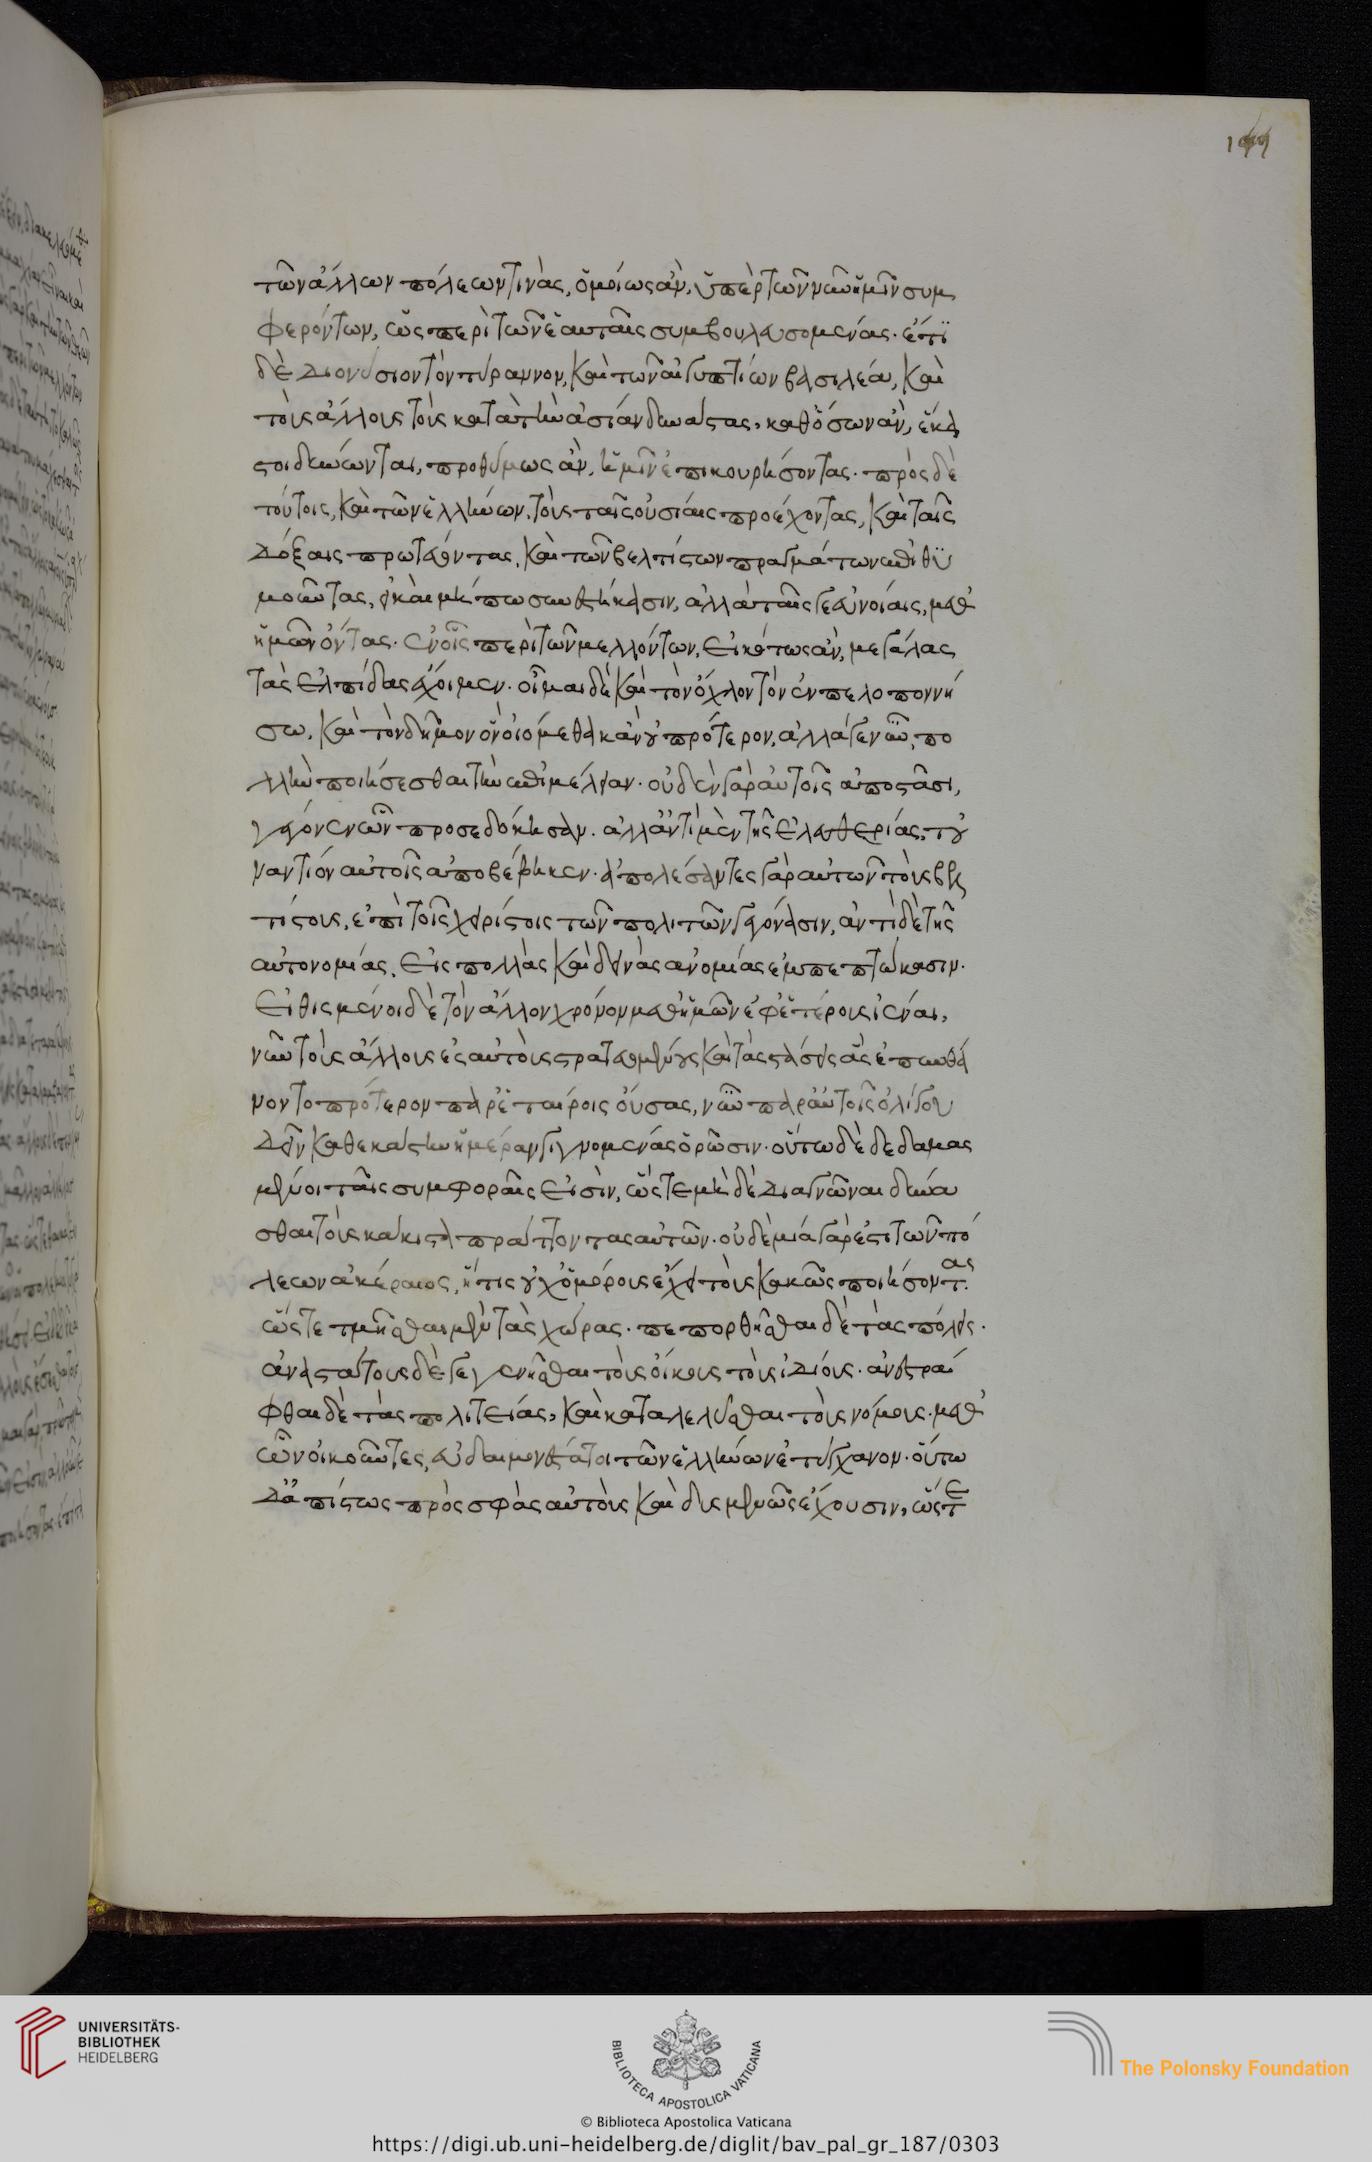 144
τῶν ἄλλων πόλεών τινὰς, ὁμοίως ἂν, ὑπὲρ τῶν νῦν ἡμῖν συμ
φερόντων, ὥσπερὶ τῶν ἑαυταῖς συμβουλευσομένας. ἔτι
δὲ Διονύσιον τὸν τύραννον, καὶ τῶν αἰγυπτίων βασιλέα, καὶ
τοὺς ἄλλους τοὺς κατὰ τὴν ἀσίαν δυνάστας, καθ' ὅσων ἂν, ἕκα
στοι δύνωνται, προθύμως ἂν, ἡμῖν ἐπικουρήσοντας. πρὸς δὲ
τούτοις, καὶ τῶν ἑλλήνων, τοὺς ταῖς οὐσίαις προέχοντας, καὶ ταῖς
δόξαις πρωτεύοντας, καὶ τῶν βελτίστων πραγμάτων ἐπιθυ
μοῦντας, εἰ καὶ μήπω συνεστήκασιν, ἀλλὰ ταῖς γε εὐνοίαις, μεθ'
ἡμῶν ὄντας. ἐν οἷς περὶ τῶν μελλόντων, εἰκότως ἂν, μεγάλας
τὰς ἐλπίδας ἔχοιμεν. οἶμαι δὲ καὶ τὸν ὄχλον τὸν ἐν πελοποννή
σω, καὶ τὸν δῆμον ὃν οἰόμεθα κἀν οὐ πρότερον, ἀλλά γε νῦν, πο
λλὴν ποιήσεσθαι τὴν ἐπιμέλειαν. οὐδὲν γὰρ αὐτοῖς ἀποστᾶσι,
γέγονεν ὧν προσεδόκησαν. ἀλλ' ἀντὶ μὲν τῆς ἐλευθερίας, τοὐ
ναντίον αὐτοῖς ἀποβέβηκεν. ἀπολέσαντες γὰρ αὐτῶν τοὺς βελ
τίστους, ἐπὶ τοῖς χειρίστοις τῶν πολιτῶν γεγόνασιν, ἀντὶ δὲ τῆς
αὐτονομίας, εἰς πολλὰς καὶ δεινὰς ἀνομίας ἐμπεπτώκασιν.
εἰθισμένοι δὲ τὸν ἄλλον χρόνον μεθ' ἡμῶν ἐφ' ἑτέρους ἰέναι,
νῦν τοὺς ἄλλους ἐς αὐτοὺς στρατευομένους καὶ τὰς στάσεις ἃς ἐπυνθά
νοντο πρότερον παρ' ἑταίροις οὔσας, νῦν παρ' αὐτοῖς ὀλίγου
δεῖν καθεκάστην ἡμέραν γιγνομένας ὁρῶσιν. οὕτω δὲ δεδαμας
μένοι ταῖς συμφοραῖς εἰσὶν, ὥστε μηδὲ διαγνῶναι δύνα
σθαι τοὺς κάκιστα πράττοντας αὐτῶν. οὐδὲ μιὰ γὰρ ἐστι τῶν πό
λεων ἀκέραιος, ἥτις οὐχ ὁμόρους ἔχει τοὺς κακῶς ποιήσοντας.
ὥστε τμηᾶσθαι μὲν τὰς χώρας. πεπορθῆσθαι δὲ τὰς πόλεις.
ἀναστάτους δὲ γεγενῆσθαι τοὺς οἴκους τοὺς ἰδίους. ἀνεστρά
φθαι δὲ τὰς πολιτείας, καὶ καταλελῦσθαι τοὺς νόμους. μεθ'
ὧν οἰκοῦντες, εὐδαιμονέστατοι τῶν ἑλλήνων ἐτύγχανον. οὕτω
δ' ἀπίστως πρὸς σφᾶς αὐτοὺς καὶ δυσμενῶς ἔχουσιν, ὥστε
UNIVERSITÄTS-
BIBLIOTHEK
HEIDELBERG
BIBLIOTECA APOSTOLICA VATICANA
The Polonsky Foundation
© Biblioteca Apostolica Vaticana
https://digi.ub.uni-heidelberg.de/diglit/bav_pal_gr_187/0303